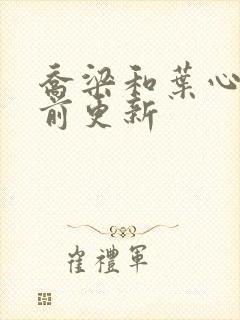 喬梁和葉心
前更新
崔禮軍